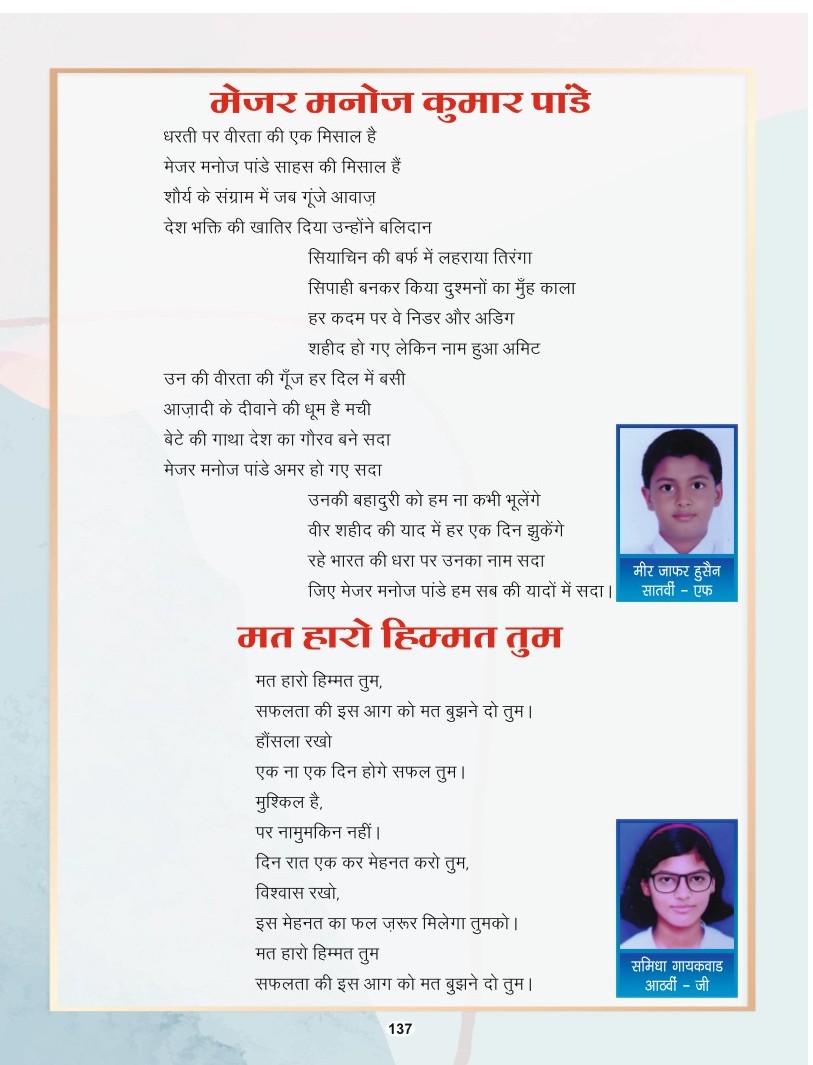 मेजर मनोज कुमार पांडे
धरती पर वीरता की एक मिसाल है
मेजर मनोज पांडे साहस की मिसाल हैं
शौर्य के संग्राम में जब गूंजे आवाज़
देश भक्ति की खातिर दिया उन्होंने बलिदान
सियाचिन की बर्फ में लहराया तिरंगा
सिपाही बनकर किया दुश्मनों का मुँह काला
हर कदम पर वे निडर और अडिग
शहीद हो गए लेकिन नाम हुआ अमिट
उन की वीरता की गूँज हर दिल में बसी
आज़ादी के दीवाने की धूम है मची
बेटे की गाथा देश का गौरव बने सदा
मेजर मनोज पांडे अमर हो गए सदा
उनकी बहादुरी को हम ना कभी भूलेंगे
वीर शहीद की याद में हर एक दिन झुकेंगे
रहे भारत की धरा पर उनका नाम सदा
जिए मेजर मनोज पांडे हम सब की यादों में सदा।
मीर जाफर हुसैन
सातवीं - एफ
मत हारो हिम्मत तुम
मत हारो हिम्मत तुम,
सफलता की इस आग को मत बुझने दो तुम।
हौंसला रखो
एक ना एक दिन होगे सफल तुम।
मुश्किल है,
पर नामुमकिन नहीं।
दिन रात एक कर मेहनत करो तुम,
विश्वास रखो,
इस मेहनत का फल ज़रूर मिलेगा तुमको।
मत हारो हिम्मत तुम
सफलता की इस आग को मत बुझने दो तुम।
समिधा गायकवाड
आठवीं - जी
137